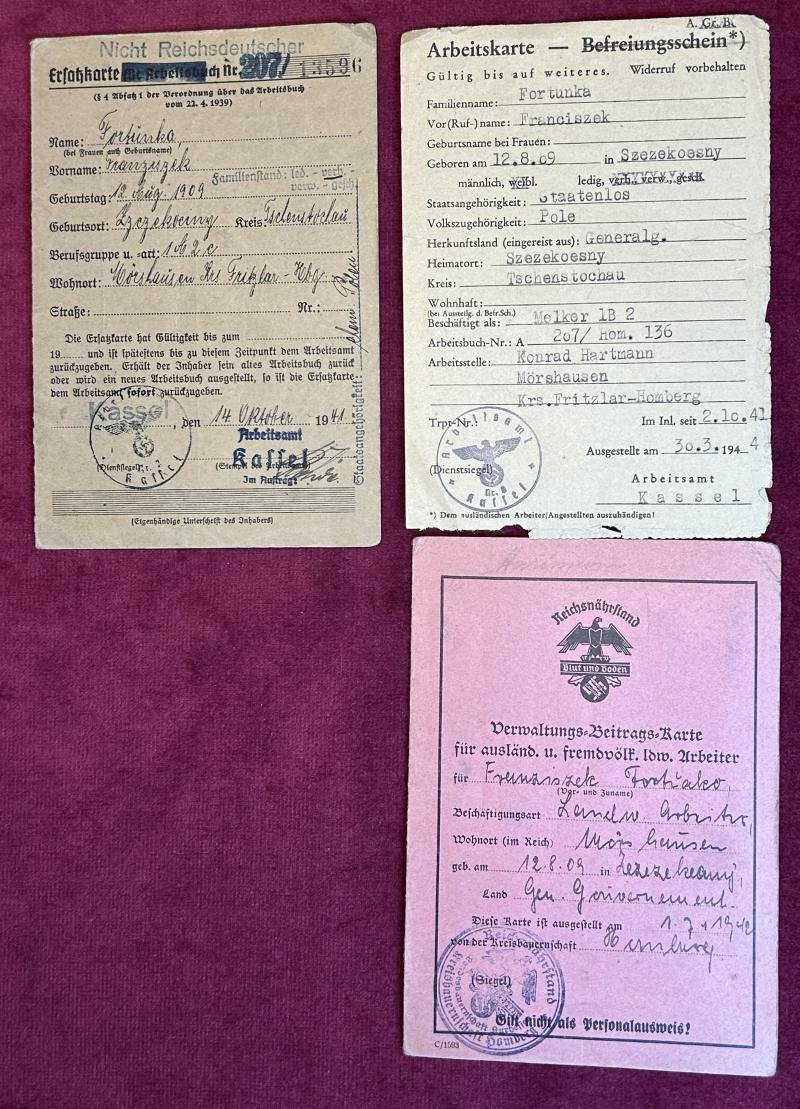 Nicht Reichsdeutscher
Ersatzkarte für Arbeitsbuch Nr. 207/ 13596
(§ 4 Absatz 1 der Verordnung über das Arbeitsbuch
vom 22. 4. 1939)
Name: Fortunka,
(bei Frauen auch Geburtsname)
Vorname: Franzuzek
Familienstand: led. - verh. -
verw. - gesch.
Geburtstag: 12. Aug. 1909
Geburtsort: Szczekociny Kreis: Tschenstochau
Berufsgruppe u. -art: 1 b 2 c
Wohnort: Mörshausen Krs Fritzlar-Hbg.
Straße: Nr.:
Die Ersatzkarte hat Gültigkeit bis zum
19 und ist spätestens bis zu diesem Zeitpunkt dem Arbeitsamt
zurückzugeben. Erhält der Inhaber sein altes Arbeitsbuch zurück
oder wird ein neues Arbeitsbuch ausgestellt, so ist die Ersatzkarte
dem Arbeitsamt sofort zurückzugeben.
Kassel, den 14. Oktober 1941.
Arbeitsamt
Kassel
(Dienstsiegel) (Stempel des Arbeitsamts)
Im Auftrag:
Arbeitsamt Kassel
Staatsangehörigkeit: Polen
(Eigenhändige Unterschrift des Inhabers)
A. Gr. B.
Arbeitskarte — Befreiungsschein*)
Gültig bis auf weiteres. Widerruf vorbehalten
Familienname: Fortunka
Vor(Ruf-)name: Franciszek
Geburtsname bei Frauen:
Geboren am 12.8.09 in Szezekoesny
männlich, weibl. ledig, verh. verw., gesch.
Staatsangehörigkeit: Staatenlos
Volkszugehörigkeit: Pole
Herkunftsland (eingereist aus): Generalg.
Heimatort: Szezekoesny
Kreis: Tschenstochau
Wohnhaft:
(bei Ausstellg. d. Befr.Sch.)
Beschäftigt als: Melker 1B 2
Arbeitsbuch-Nr.: A 207/ Hom. 136
Arbeitsstelle: Konrad Hartmann
Mörshausen
Krs.Fritzlar-Homberg
Trpt-Nr.: Im Inl. seit 2.10.41
Ausgestellt am 30.3. 1944
(Dienstsiegel) Arbeitsamt
Kassel
Arbeitsamt Kassel
*) Dem ausländischen Arbeiter/Angestellten auszuhändigen!
Reichsnährstand
Blut und Boden
Verwaltungs-Beitrags-Karte
für ausländ. u. fremdvölk. ldw. Arbeiter
für Franziszek
(Vor- und Zuname)
Beschäftigungsart Landw Arbeiter,
Wohnort (im Reich) Mörshausen
geb. am 12.8.09 in
Land Gen. Gouvernement.
Diese Karte ist ausgestellt am 1.7.1942
von der Kreisbauernschaft Homberg
(Siegel)
Reichsnährstand
Kreisbauernschaft Homberg
Gilt nicht als Personalausweis!
C/1593